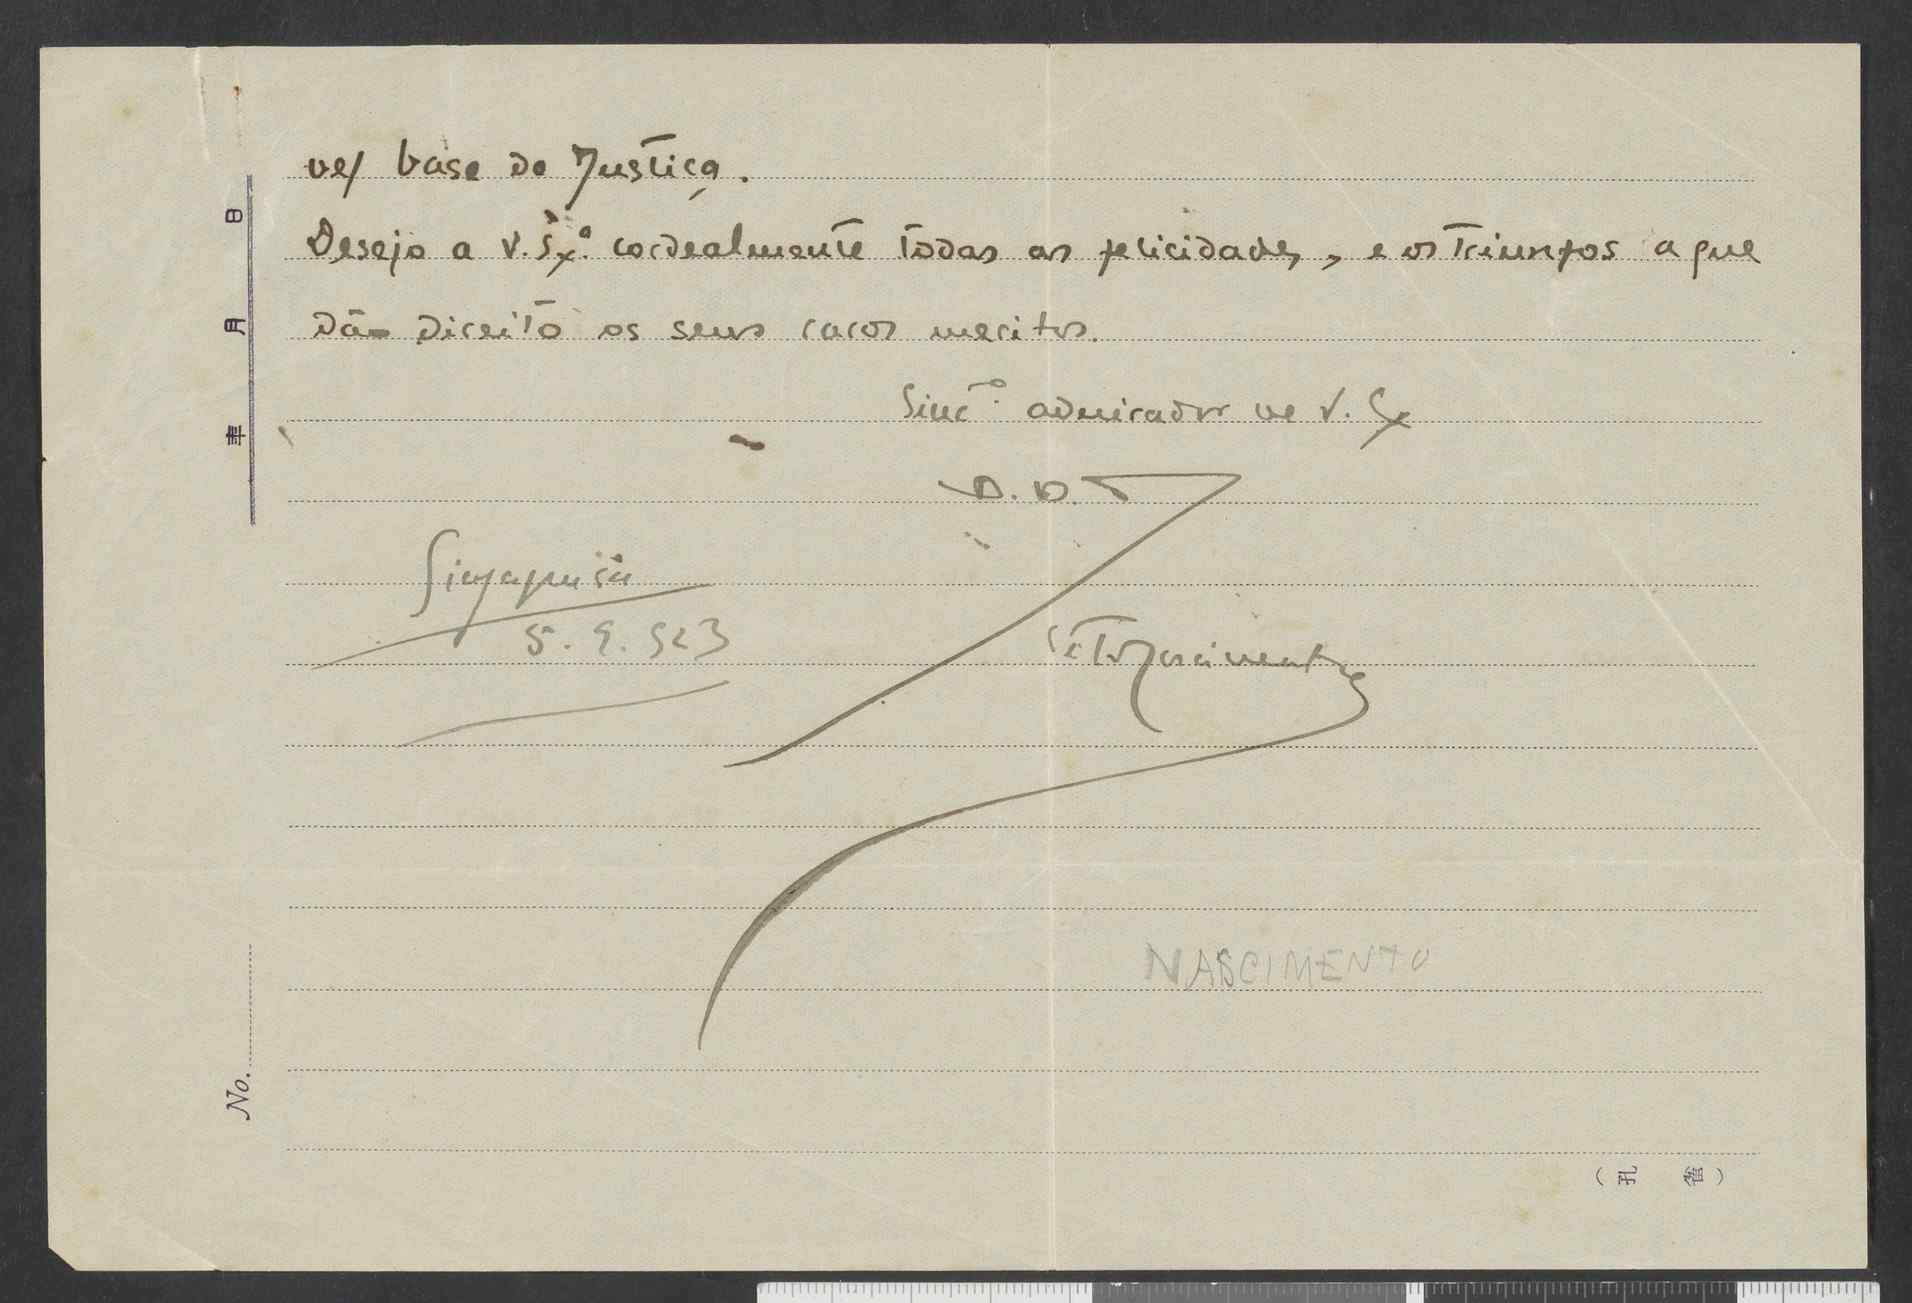 vel base de Justiça.
Desejo a V. Exª. cordealmente todas as felicidades, e os triunfos a que
dão direito os seus raros meritos.
Sincº. admirador de V. Ex
D. D.
Singapura
5. 9. 923
Nascimento
NASCIMENTO
年 月 日
No.
(孔 雀)